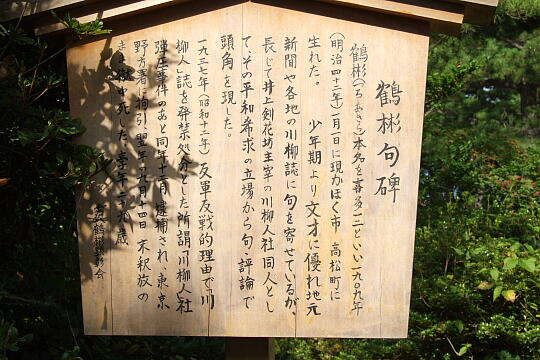 鶴彬句碑
鶴彬(つるあきら)本名を喜多一二といい一九〇九年
(明治四十二年)一月一日に現かほく市 高松町に
生れた。 少年期より文才に優れ地元
新聞や各地の川柳誌に句を寄せているが、
長じて井上剣花坊主宰の川柳人社同人とし
て、その平和希求の立場から句、評論で
頭角を現した。
一九三七年(昭和十二年)反軍反戦的理由で「川
柳人」誌を発禁処分とした所謂「川柳人」社
弾圧事件のあと同年十二月 逮捕され、東京
野方署に拘引、翌年九月十四日 未釈放の
まま獄中死した。享年二十九歳
鶴彬顕彰会